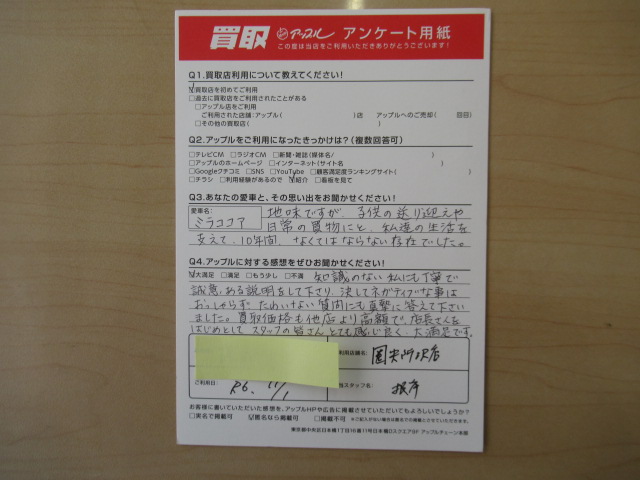 買取 アップル アンケート用紙
この度は当店をご利用いただきありがとうございます!
Q1.買取店利用について教えてください!
☑買取店を初めてご利用
□過去に買取店をご利用されたことがある
□アップル店をご利用
ご利用された店舗:アップル( )店 アップルへのご売却( 回目)
□その他の買取店( )
Q2.アップルをご利用になったきっかけは?(複数回答可)
□テレビCM □ラジオCM □新聞・雑誌(媒体名/ )
□アップルのホームページ □インターネット(サイト名 )
□Googleクチコミ □SNS □YouTube □顧客満足度ランキングサイト( )
□チラシ □利用経験があるので ☑紹介 □看板を見て
Q3.あなたの愛車と、その思い出をお聞かせください!
愛車名: ミラココア
地味ですが、子供の送り迎えや
日常の買物にと、私達の生活を
支えて、10年間、なくてはならない存在でした。
Q4.アップルに対する感想をぜひお聞かせください!
☑大満足 □満足 □もう少し □不満 知識のない私にも丁寧で
誠意ある説明をして下さり、決してネガティブな事は
おっしゃらず たわいもない質問にも真摯に答えて下さい
ました。買取価格も他店より高額で、店長さんを
はじめとして スタッフの皆さん とても感じ良く、大満足です。
利用店舗名:
ご利用日: R6. 11/1
担当スタッフ名: 根岸
お客様に書いていただいた感想を、アップルHPや広告に掲載させていただいてもよろしいでしょうか?
□実名で掲載可 ☑匿名なら掲載可 □掲載不可 ※ご記入がない場合は匿名での掲載とさせていただきます。
東京都中央区日本橋1丁目16番11号日本橋Dスクエア8F アップルチェーン本部